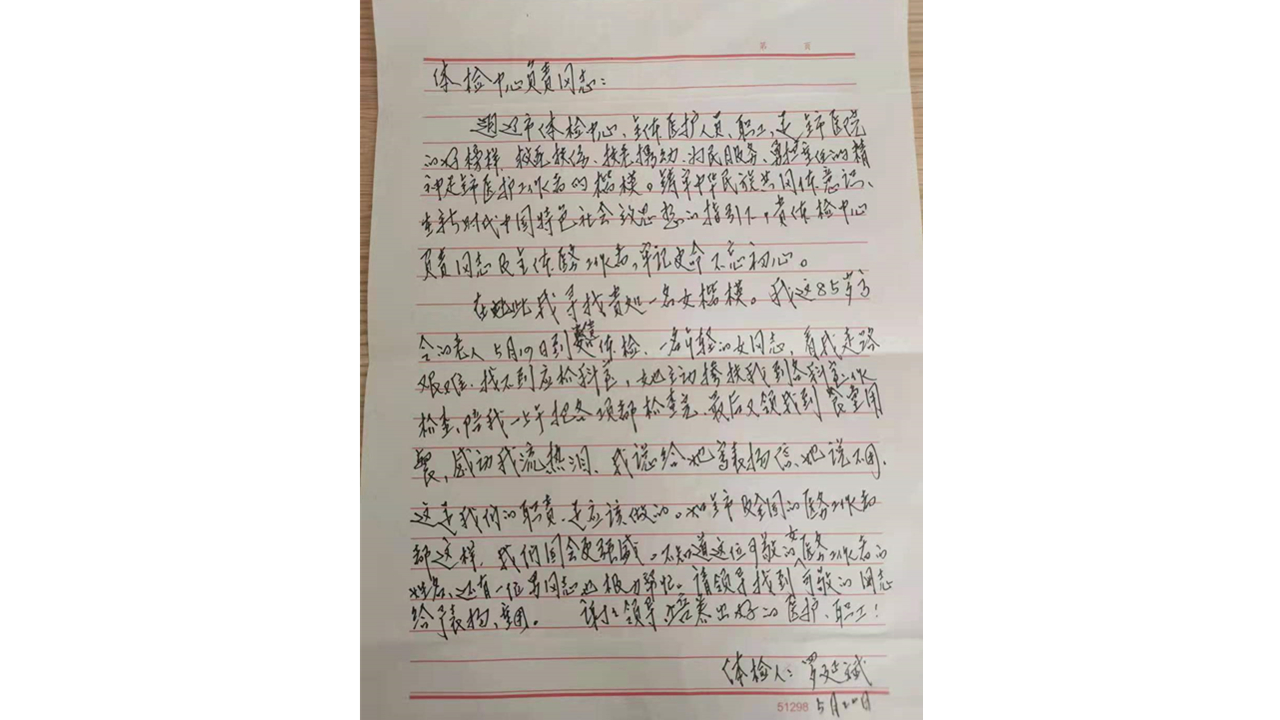 第 页
体检中心负责同志：
我市体检中心、全体医护人员、职工、是全市医院
的好榜样，救死扶伤、扶老携幼、为民服务、勇担重任的精
神是全市医护工作者的楷模。铸牢中华民族共同体意识、
在新时代中国特色社会主义思想的指引下，贵体检中心
负责同志及全体医务工作者，牢记使命不忘初心。
在此我寻找贵处一名女楷模。我这85岁
的老人5月19日到体检、一名年轻的女同志，看我走路
艰难、找不到应检科室，她主动搀扶我到各科室
检查、陪我一上午把各项都检查完、最后又领我到食堂用
餐，感动我流热泪、我说给她写表扬信、她说不用、
这是我们的职责、是应该做的。如全市及全国的医务工作者
都这样，我们国会更强盛。不知道这位可敬的女医务工作者的
姓名、还有一位男同志也极力帮忙。请领导找到可敬的同志
给予表扬、重用。 谢谢领导培养出好的医护、职工！
体检人：罗延斌
51298 5月20日